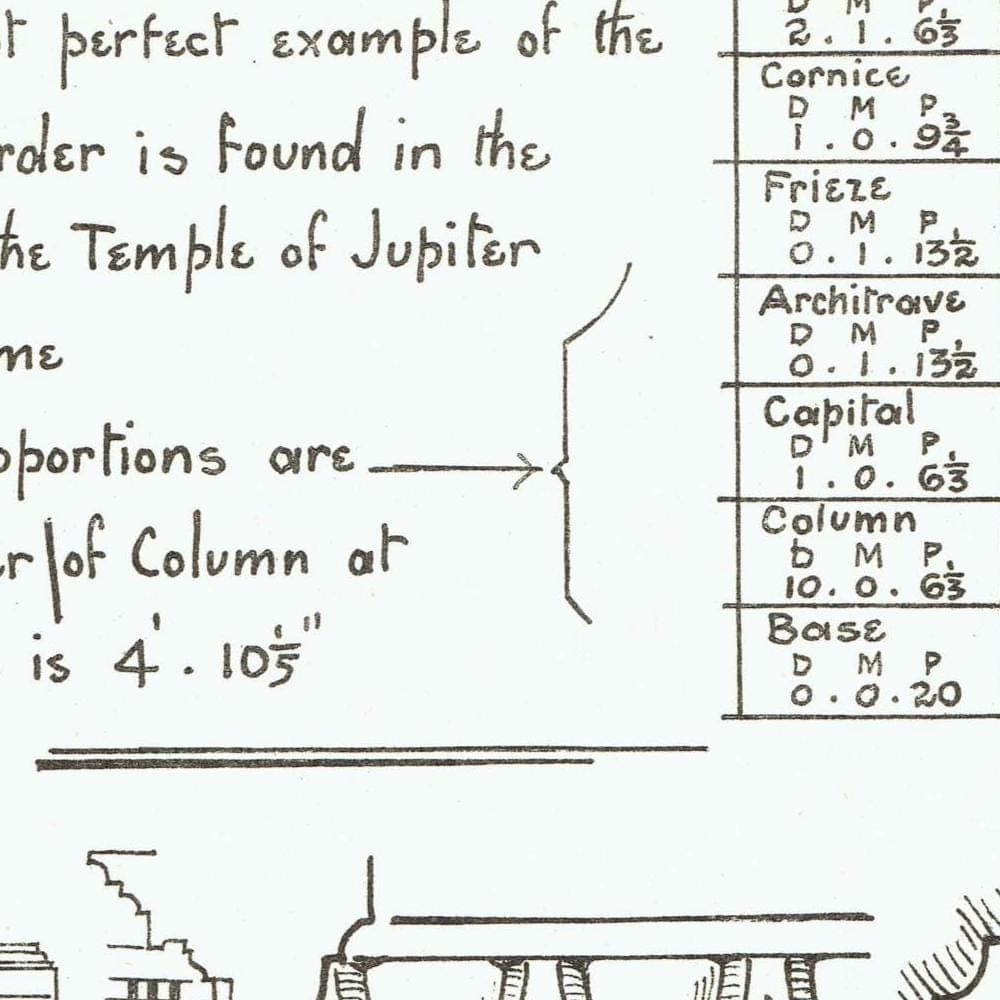 perfect example of the
is found in the
Temple of Jupiter
proportions are
of Column at
is 4' . 10 1/5"
D M P
2 . 1 . 6 1/3
Cornice
D M P
1 . 0 . 9 3/4
Frieze
D M P
0 . 1 . 13 1/2
Architrave
D M P
0 . 1 . 13 1/2
Capital
D M P
1 . 0 . 6 1/3
Column
D M P
10 . 0 . 6 1/3
Base
D M P
0 . 0 . 20